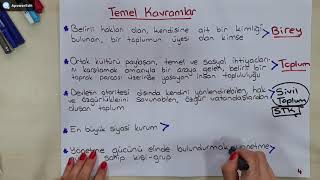 ApowerEdit
Temel Kavramlar
Belirli hakları olan, kendisine ait bir kimliği
bulunan, bir toplumun üyesi olan kimse
Birey
Ortak kültürü paylaşan, temel ve sosyal ihtiyaçları
nı karşılamak amacıyla bir araya gelen, belirli bir
toprak parçası üzerinde yaşayan insan topluluğu
Toplum
Devletin otoritesi dışında kendini yönlendirebilen, hak
ve özgürlüklerini savunabilen, özgür vatandaşlardan
oluşan toplum
Sivil
Toplum
STK
En büyük siyasi kurum
Yönetme gücünü elinde bulundurmak, yönetme
sahip kişi-grup
4